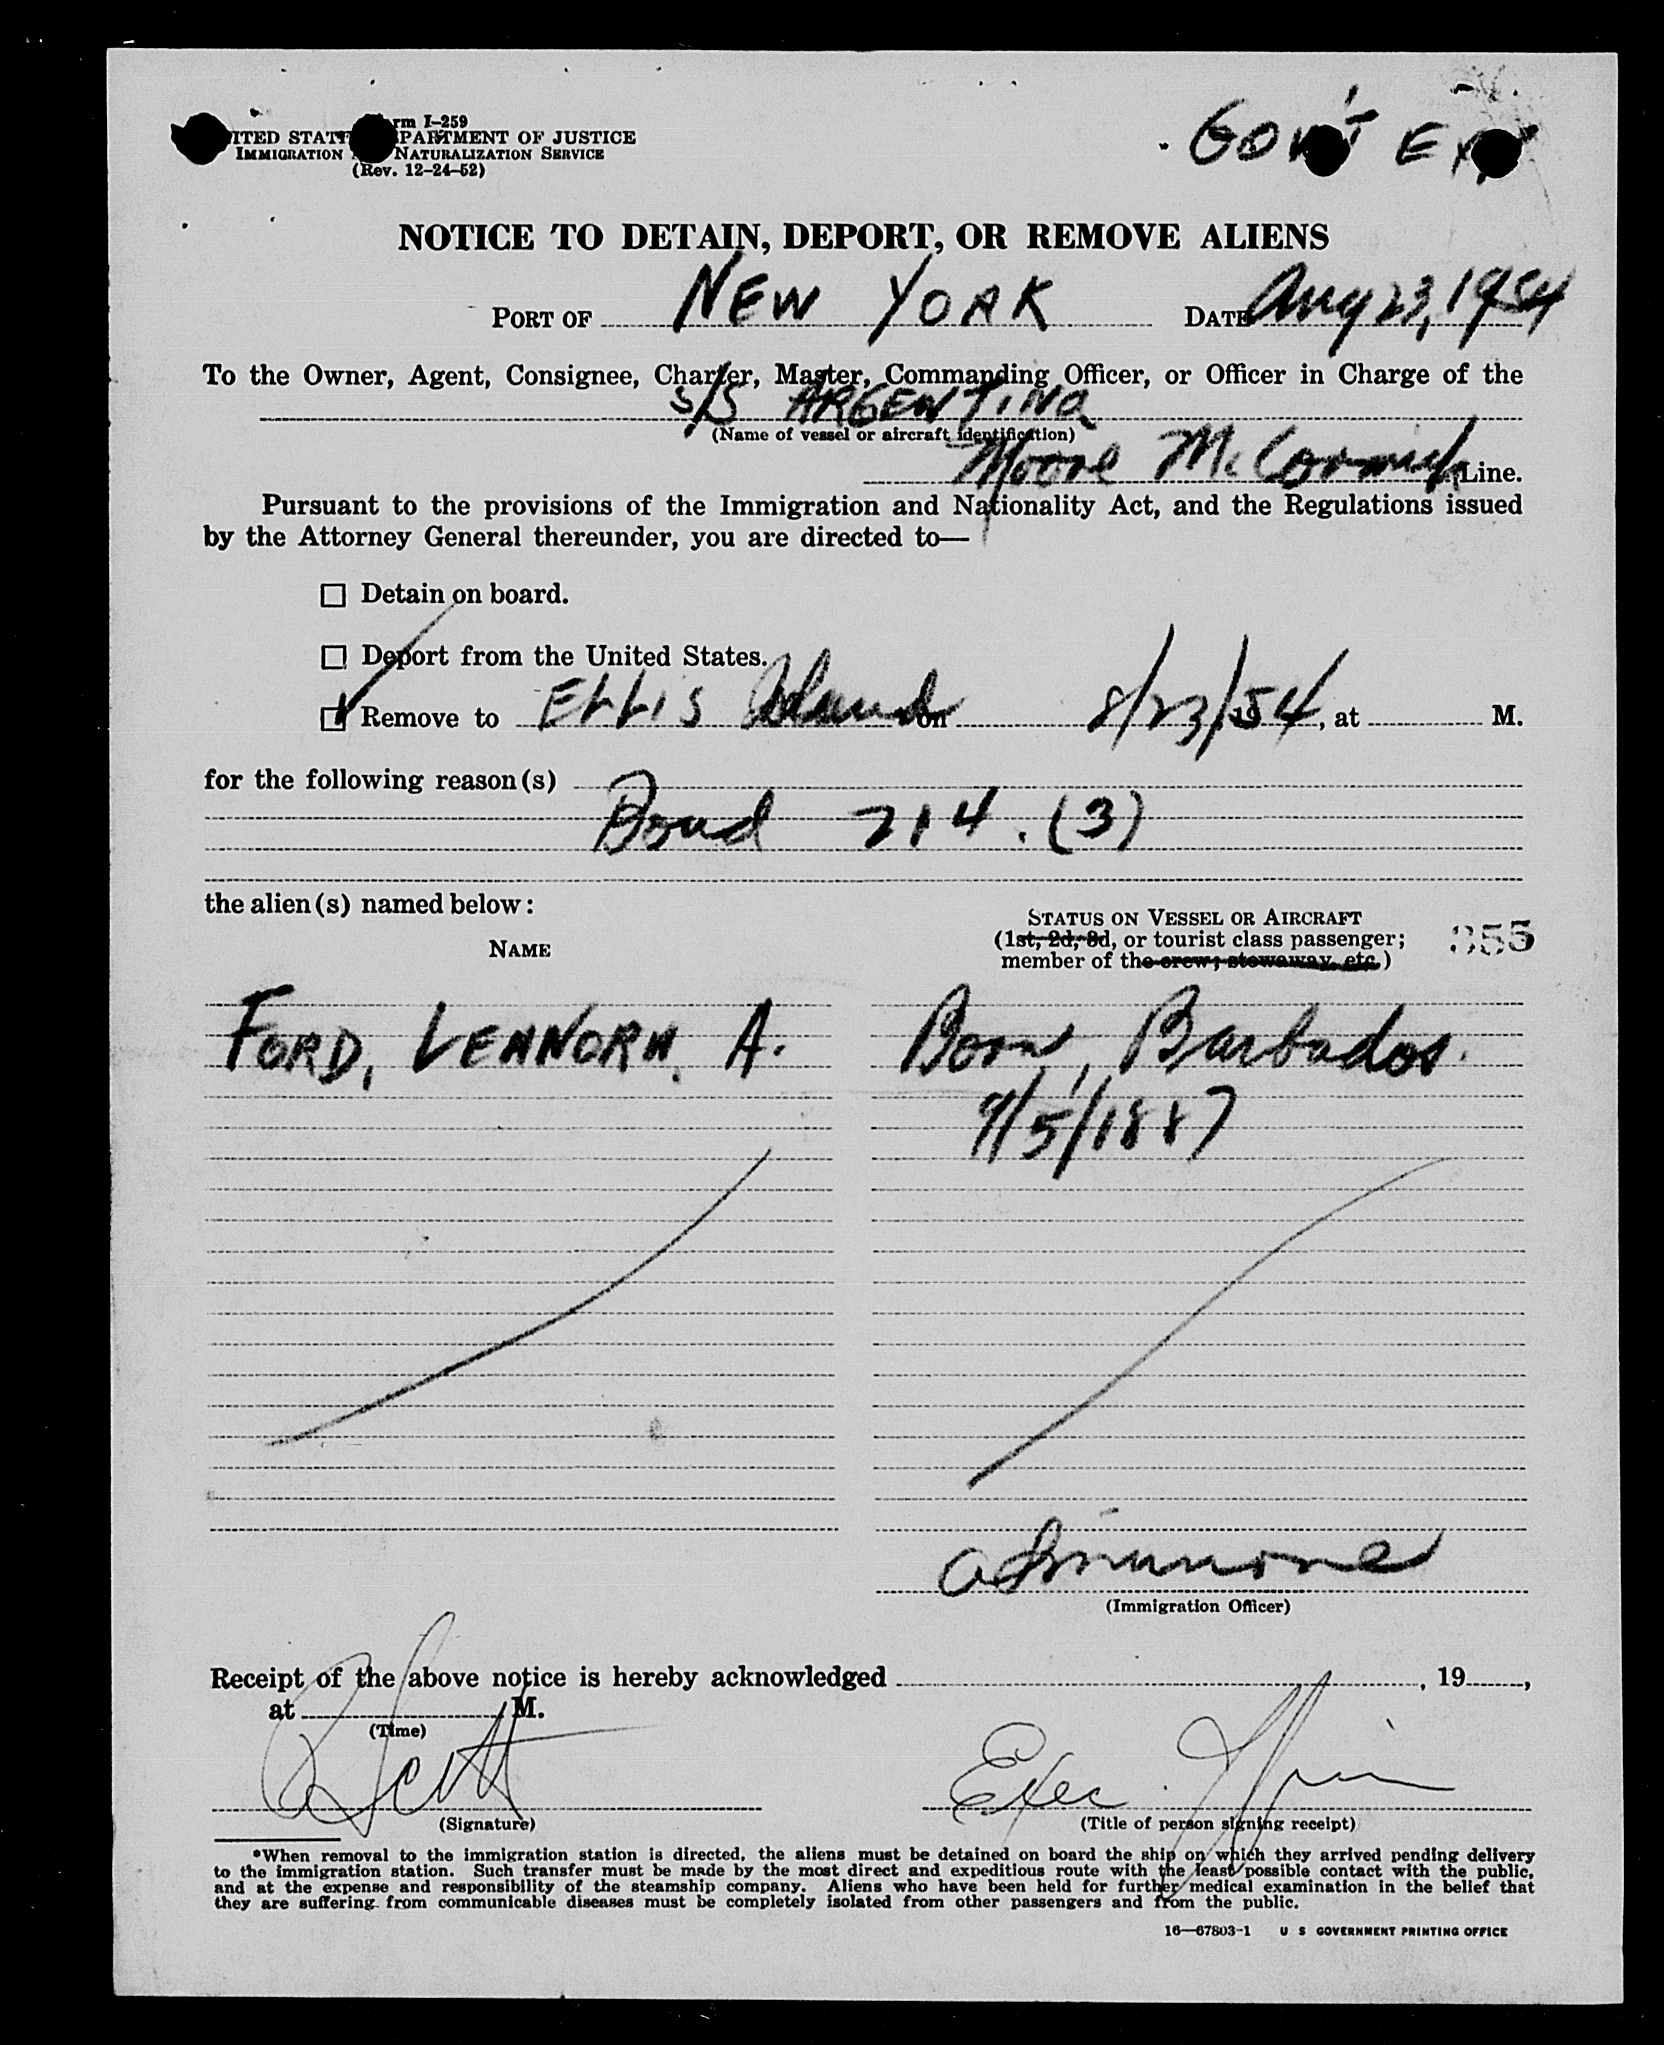 Form I-259
UNITED STATES DEPARTMENT OF JUSTICE
IMMIGRATION AND NATURALIZATION SERVICE
(Rev. 12-24-52)
GOV'T EX
NOTICE TO DETAIN, DEPORT, OR REMOVE ALIENS
PORT OF NEW YORK DATE Aug 23, 1954
To the Owner, Agent, Consignee, Charter, Master, Commanding Officer, or Officer in Charge of the
S/S ARGENTINA
(Name of vessel or aircraft identification)
Moore McCormick Line.
Pursuant to the provisions of the Immigration and Nationality Act, and the Regulations issued
by the Attorney General thereunder, you are directed to—
☐ Detain on board.
☐ Deport from the United States.
☑ Remove to ELLIS Island on 8/23/1954, at M.
for the following reason(s)
Bond 214.(3)
the alien(s) named below:
STATUS ON VESSEL OR AIRCRAFT
NAME (1st, 2d, 3d, or tourist class passenger; 355
member of the crew; stowaway, etc.)
FORD, LENNORA. A. Born, Barbados.
9/5/1887
(Immigration Officer)
Receipt of the above notice is hereby acknowledged , 19 ,
at M.
(Time)
Scott Exec.
(Signature) (Title of person signing receipt)
*When removal to the immigration station is directed, the aliens must be detained on board the ship on which they arrived pending delivery
to the immigration station. Such transfer must be made by the most direct and expeditious route with the least possible contact with the public,
and at the expense and responsibility of the steamship company. Aliens who have been held for further medical examination in the belief that
they are suffering from communicable diseases must be completely isolated from other passengers and from the public.
16—67803-1 U S GOVERNMENT PRINTING OFFICE